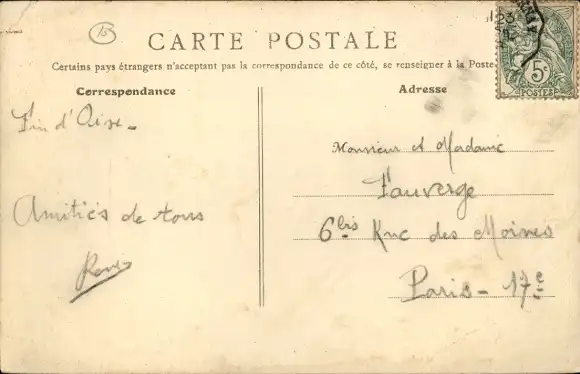 15
CARTE POSTALE
Certains pays étrangers n'acceptant pas la correspondance de ce côté, se renseigner à la Poste
Correspondance
Adresse
5c
POSTES
23
Fin d'Oise -
Amitiés de tous
Monsieur et Madame
Fauverge
6 bis Rue des Moines
Paris - 17e